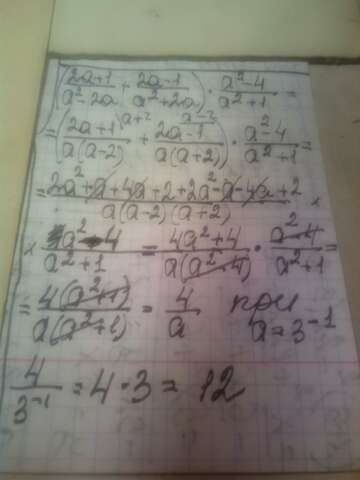 (2a+1/a²-2a + 2a-1/a²+2a) · a²-4/a²+1 =
= (2a+1/a(a-2) ^a+2 + 2a-1/a(a+2) ^a-2) · a²-4/a²+1 =
= 2a²+a+4a+2+2a²-a-4a+2/a(a-2)(a+2) ×
× a²-4/a²+1 = 4a²+4/a(a²-4) · a²-4/a²+1 =
= 4(a²+1)/a(a²+1) = 4/a при a=3⁻¹
4/3⁻¹ = 4·3 = 12